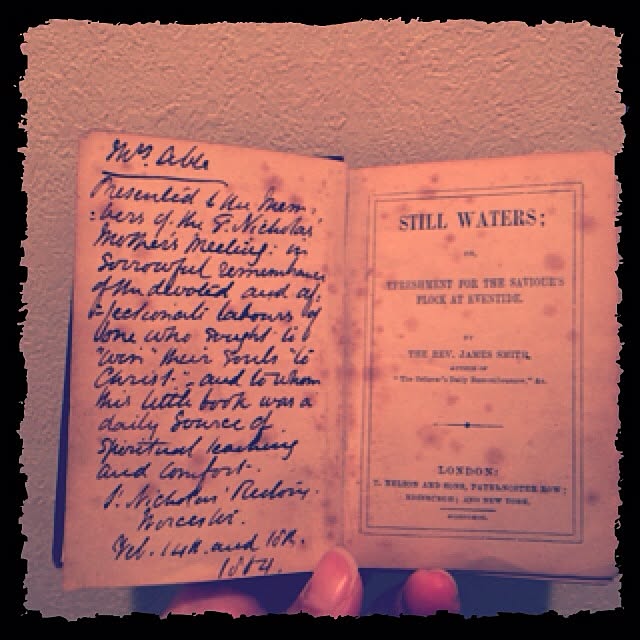 Mrs.
Presented to the Mem-
-bers of the S. Nicholas
Mothers Meeting: in
sorrowful remembrance
of the devoted and af-
-fectionate labours of
one who sought to
"win" their souls "to
Christ." and to whom
this little book was a
daily source of
Spiritual teaching
and comfort.
S. Nicholas' Rectory.
Worcester.
Feb. 14th. and 15th.
1884.
STILL WATERS;
OR,
REFRESHMENT FOR THE SAVIOUR'S
FLOCK AT EVENTIDE.
BY
THE REV. JAMES SMITH,
AUTHOR OF
"The Believer's Daily Remembrancer," &c.
LONDON:
T. NELSON AND SONS, PATERNOSTER ROW;
EDINBURGH; AND NEW YORK.